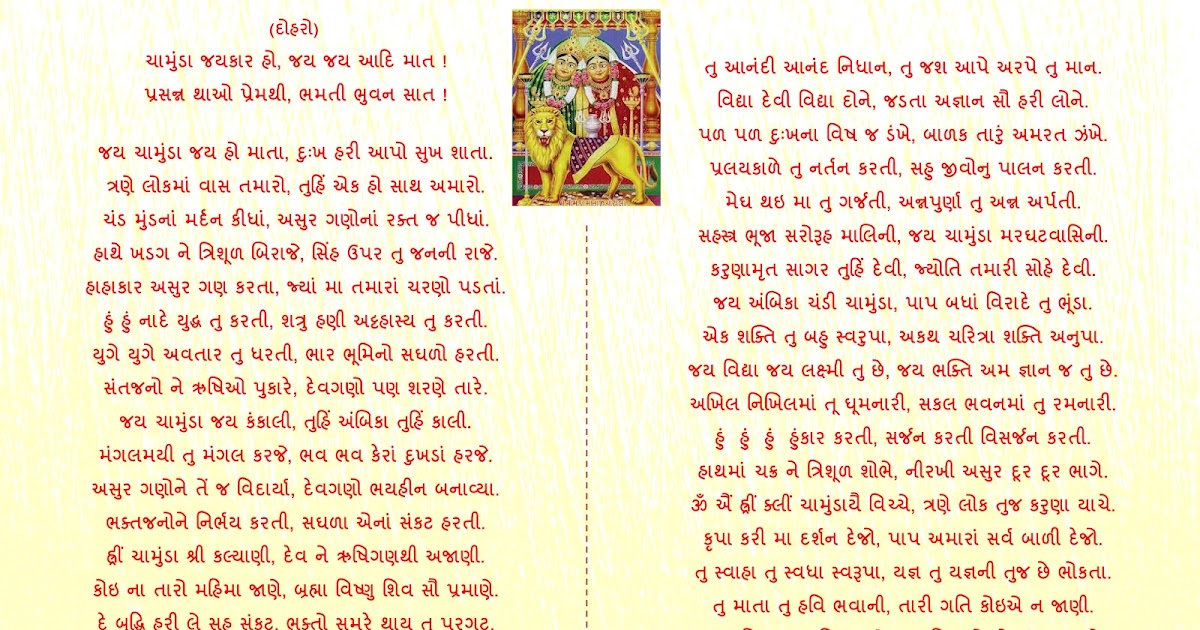 (દોહરો)
ચામુંડા જયકાર હો, જય જય આદિ માત !
પ્રસન્ન થાઓ પ્રેમથી, ભમતી ભુવન સાત !
જય ચામુંડા જય હો માતા, દુઃખ હરી આપો સુખ શાતા.
ત્રણે લોકમાં વાસ તમારો, તુહિં એક હો સાથ અમારો.
ચંડ મુંડનાં મર્દન કીધાં, અસુર ગણોનાં રક્ત જ પીધાં.
હાથે ખડગ ને ત્રિશૂળ બિરાજે, સિંહ ઉપર તુ જનની રાજે.
હાહાકાર અસુર ગણ કરતા, જ્યાં મા તમારાં ચરણો પડતાં.
હું હું નાદે યુદ્ધ તુ કરતી, શત્રુ હણી અટ્ટહાસ્ય તુ કરતી.
યુગે યુગે અવતાર તુ ધરતી, ભાર ભૂમિનો સઘળો હરતી.
સંતજનો ને ઋષિઓ પુકારે, દેવગણો પણ શરણે તારે.
જય ચામુંડા જય કંકાલી, તુહિં અંબિકા તુહિં કાલી.
મંગલમયી તુ મંગલ કરજે, ભવ ભવ કેરાં દુખડાં હરજે.
અસુર ગણોને તેં જ વિદાર્યા, દેવગણો ભયહીન બનાવ્યા.
ભક્તજનોને નિર્ભય કરતી, સઘળા એનાં સંકટ હરતી.
હ્રીં ચામુંડા શ્રી કલ્યાણી, દેવ ને ઋષિગણથી અજાણી.
કોઇ ના તારો મહિમા જાણે, બ્રહ્મા વિષ્ણુ શિવ સૌ પ્રમાણે.
દે બુદ્ધિ હરી લે સહુ સંકટ, ભક્તો સમરે થાય તુ પરગટ.
તુ આનંદી આનંદ નિધાન, તુ જશ આપે અરપે તુ માન.
વિદ્યા દેવી વિદ્યા દોને, જડતા અજ્ઞાન સૌ હરી લોને.
પળ પળ દુઃખના વિષ જ ડંખે, બાળક તારું અમરત ઝંખે.
પ્રલયકાળે તુ નર્તન કરતી, સહુ જીવોનુ પાલન કરતી.
મેઘ થઇ મા તુ ગર્જતી, અન્નપુર્ણા તુ અન્ન અર્પતી.
સહસ્ત્ર ભૂજા સરોરૂહ માલિની, જય ચામુંડા મરઘટવાસિની.
કરુણામૃત સાગર તુહિં દેવી, જ્યોતિ તમારી સોહે દેવી.
જય અંબિકા ચંડી ચામુંડા, પાપ બધાં વિરાદે તુ ભૂંડા.
એક શક્તિ તુ બહુ સ્વરુપા, અકથ ચરિત્રા શક્તિ અનુપા.
જય વિદ્યા જય લક્ષ્મી તુ છે, જય ભક્તિ અમ જ્ઞાન જ તુ છે.
અખિલ નિખિલમાં તૂ ઘૂમનારી, સકલ ભવનમાં તુ રમનારી.
હું હું હું હુંકાર કરતી, સર્જન કરતી વિસર્જન કરતી.
હાથમાં ચક્ર ને ત્રિશૂળ શોભે, નીરખી અસુર દૂર દૂર ભાગે.
ૐ ઐં હ્રીં ક્લીં ચામુંડાયૈ વિચ્ચે, ત્રણે લોક તુજ કરુણા યાચે.
કૃપા કરી મા દર્શન દેજો, પાપ અમારાં સર્વ બાળી દેજો.
તુ સ્વાહા તુ સ્વધા સ્વરૂપા, યજ્ઞ તુ યજ્ઞની તુજ છે ભોકતા.
તુ માતા તુ હવિ ભવાની, તારી ગતિ કોઇએ ન જાણી.